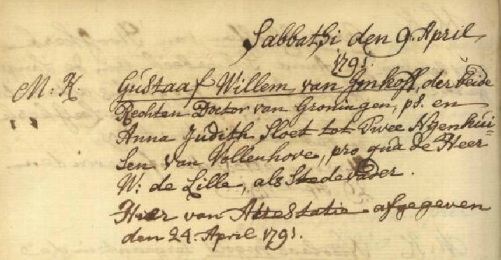 Sabbathi den 9. April
1791.
M. K. Gustaaf Willem van Imhoff, der beide
Rechten Doctor van Groningen, ps. en
Anna Judith Sloet tot Twee Nyenhui-
sen van Vollenhove, pro qua de Heer
W: de Lille, als Stedevader.
Hier van Attestatie afgegeven
den 24. April 1791.